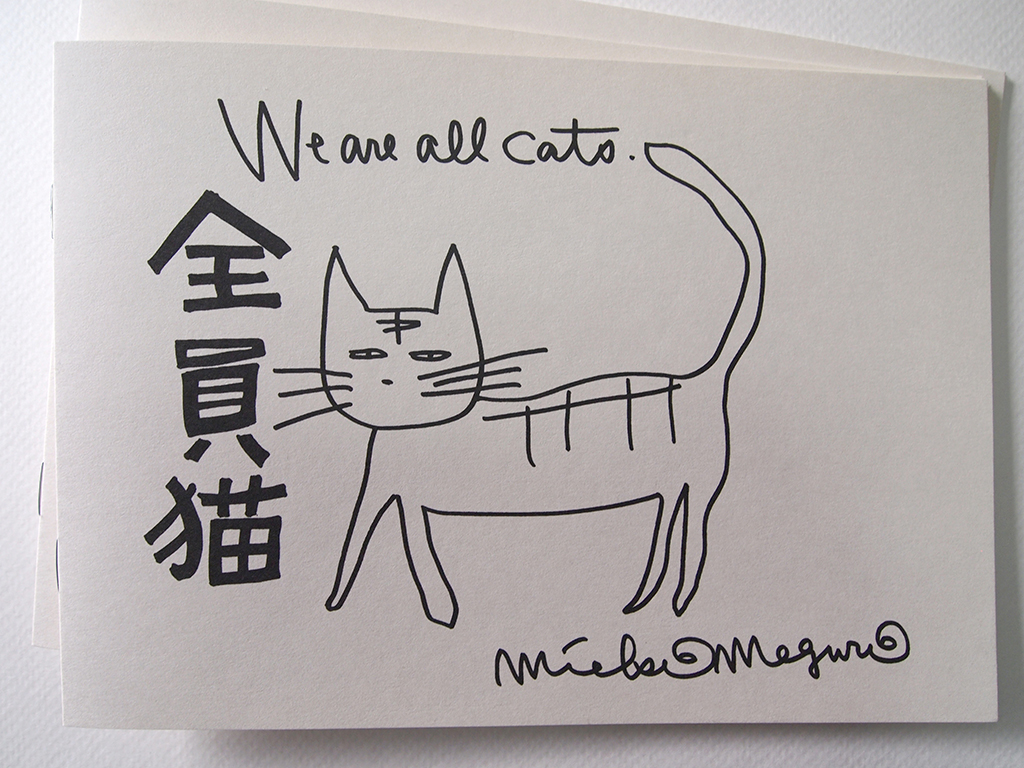 We are all cats.
全員猫
Mieko Meguro